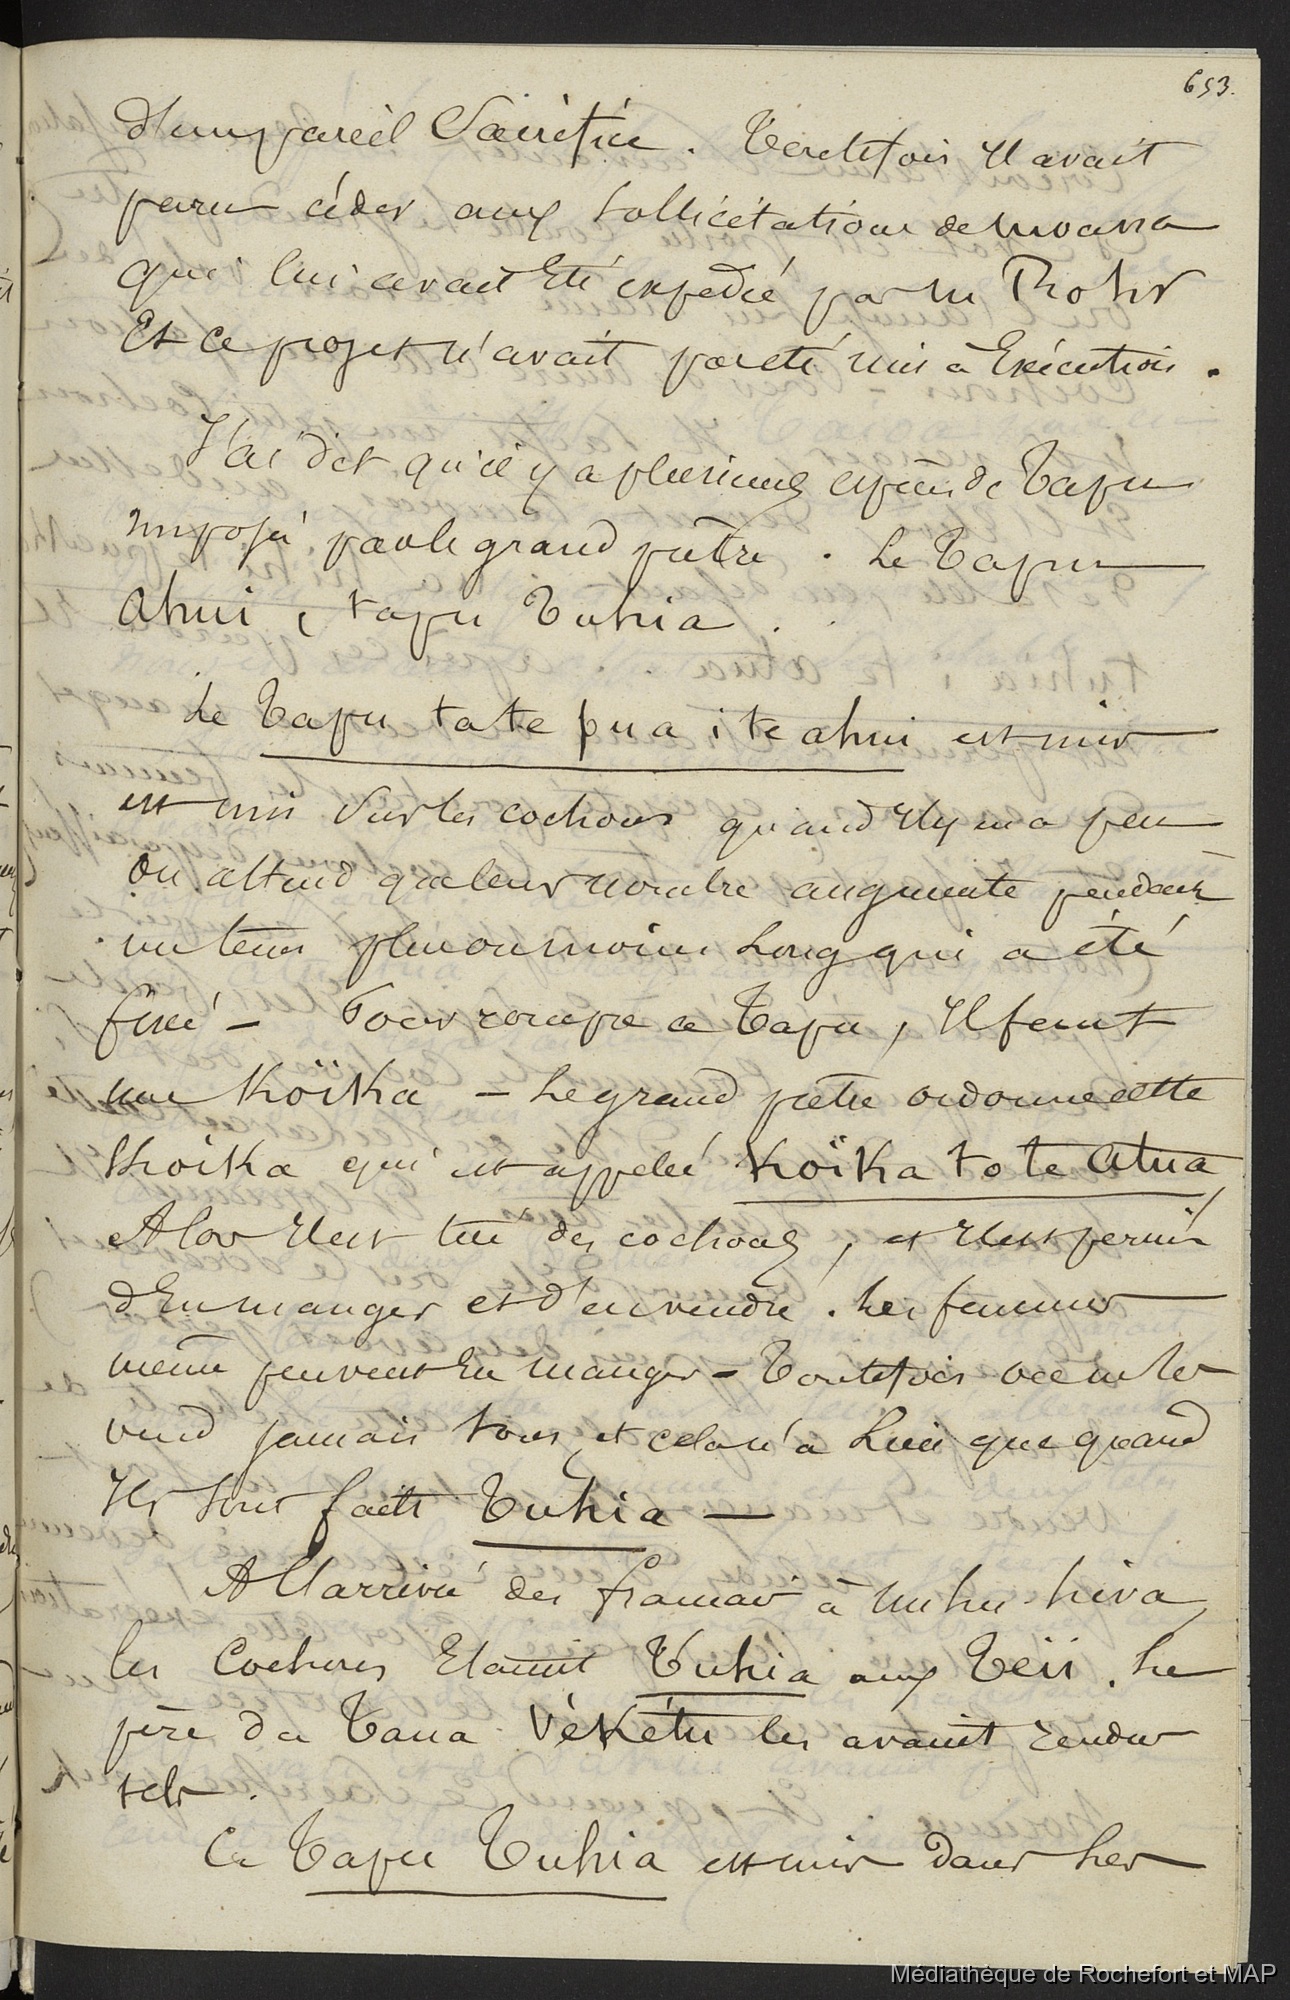 653.
d'un pareil Sacrifice. Toutefois Il avait
paru céder aux sollicitations de Moana
qui lui avait Eté expédié par M Rohr
Et ce projet n'avait pas eté mis à Exécution.
J'ai dit qu'il y a plusieurs espèces de Tapu
imposés par le grand prêtre. Le Tapu
ahui, tapu Tuhia.
Le Tapu ta te pua i te ahui est mis
est mis Sur les cochons quand Il y en a peu
On attend que leur nombre augmente pendant
un tems plus ou moins Long qui a été
fixé – Pour rompre ce Tapu, Il faut
une Koïka – Le grand prêtre ordonne cette
Koika qui est appelé Koïka to te Atua
Alors Il est tué des cochons, et Il est permis
d'En manger et d'en vendre. Les femmes
même peuvent En manger – Toutefois on ne les
vend jamais tous, et cela n'a Lieu que quand
Ils sont faits Tuhia —
A L'arrivée des français à Nuhu-hiva,
les Cochons Etaient Tuhia aux Teii. Le
père du Taua Vékétu les avait rendus
tels.
Ce Tapu Tuhia est mis dans les
Médiathèque de Rochefort et MAP